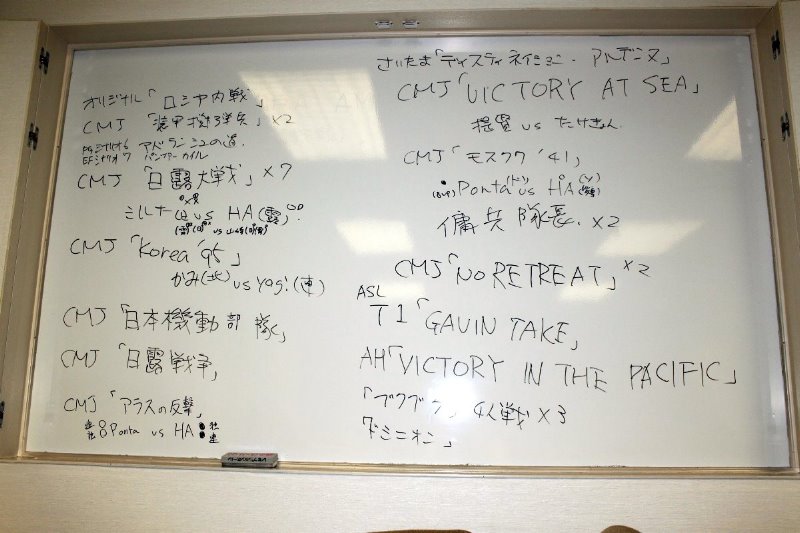 オリジナル「ロシア内戦」
CMJ「装甲擲弾兵」×2
PGシナリオ6 アドランシュの道
EFシナリオ7 パンツァーカイル
CMJ「日露大戦」×7
ミルナー(日) vs HA(露)
CMJ「Korea '95」
かみ(北) vs yogi(連)
CMJ「日本機動部隊」
CMJ「日露戦争」
CMJ「アラスの反撃」
Ponta vs HA
さいたま「ディスティネイション・アルデンヌ」
CMJ「VICTORY AT SEA」
提督 vs たけさん
CMJ「モスクワ'41」
Ponta(ドイツ) vs HA(ソ)
傭兵隊長 ×2
CMJ「NO RETREAT」×2
ASL
T1「GAVIN TAKE」
AH「VICTORY IN THE PACIFIC」
「ブクブク」4人戦×3
「ドミニオン」